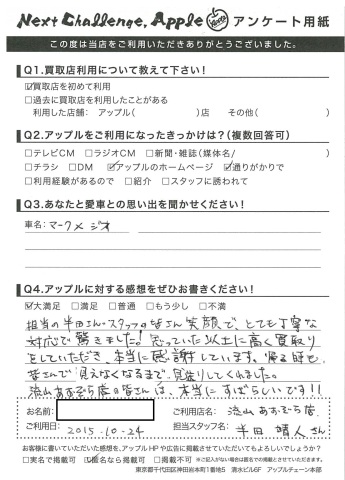 Next Challenge, Apple アンケート用紙
この度は当店をご利用いただきありがとうございました。
Q1.買取店利用について教えて下さい!
☑買取店を初めて利用
□過去に買取店を利用したことがある
利用した店舗: アップル( )店 その他( )
Q2.アップルをご利用になったきっかけは?(複数回答可)
□テレビCM □ラジオCM □新聞・雑誌(媒体名/ )
□チラシ □DM ☑アップルのホームページ ☑通りがかりで
□利用経験があるので □紹介 □スタッフに誘われて
Q3.あなたと愛車との思い出を聞かせください!
車名: マークXジオ
Q4.アップルに対する感想をぜひお書きください!
☑大満足 □満足 □普通 □もう少し □不満
担当の半田さん・スタッフの皆さん笑顔で、とても丁寧な
対応で驚きました!思っていた以上に高く買取り
をしていただき、本当に感謝しています。帰る時も、
皆さんで見えなくなるまで、見送りしてくれました。
流山おおぞら店の皆さんは、本当にすばらしいです!!
お名前: ご利用店名: 流山おおぞら店
ご利用日: 2015.10.24 担当スタッフ名: 半田 晴人さん
お客様に書いていただいた感想を、アップルHPや広告に掲載させていただいてもよろしいでしょうか?
□実名で掲載可 ☑匿名なら掲載可 □掲載不可 ※ご記入がない場合は匿名での掲載とさせていただきます。
東京都千代田区神田岩本町1番地5 清水ビル6F アップルチェーン本部